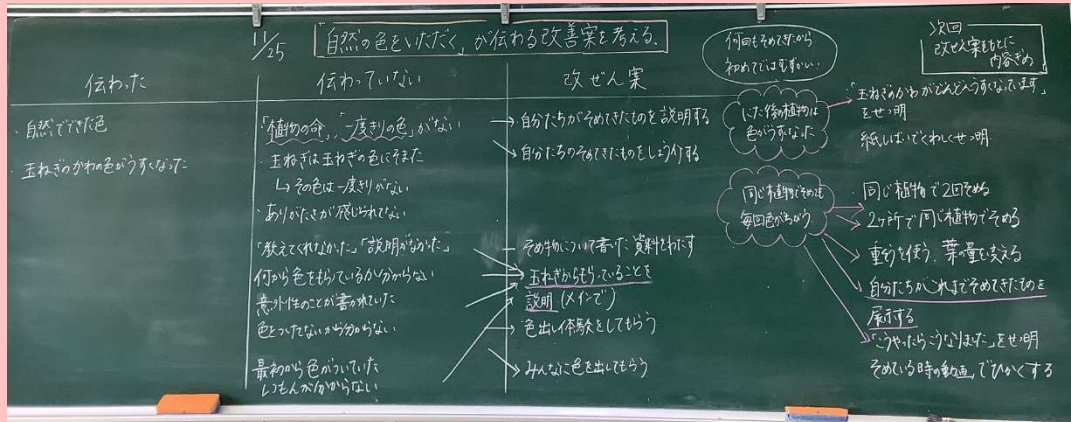 11/25
「自然の色をいただく」が伝わる改善案を考える。
伝わった
・自然でできた色
・玉ねぎのかわの色がうすくなった
伝わっていない
「植物の命」,「一度きりの色」がない
・玉ねぎは玉ねぎの色にそまた
↳その色は一度きりがない
・ありがたさが感じられてない
「教えてくれなかった」「説明がなかった」
何から色をもらっているか分からない
意外性のことが書かれていた
色をつけてないから分からない
最初から色がついていた
しつもんが分からない
改ぜん案
自分たちがそめてきたものを説明する
自分たちのそめてきたものをしょう介する
そめ物について書いた資料をわたす
玉ねぎからもらっていることを
説明(メインで)
色出し体験をしてもらう
みんなに色を出してもらう
何回もそめてきたから
初めてではむずかしい
にた後の植物は
色がうすくなった
「玉ねぎのかわがどんどんうすくなっています」
をせつ明
紙しばいでくわしくせつ明
同じ植物でそめても
毎回色がちがう
・同じ植物で2回そめる
2ヶ所で同じ植物でそめる
重そうを使う、葉の量を変える
自分たちがこれまでそめてきたものを
展示する
「こうやったらこうなりました」をせつ明
そめている時の動画でひかくする
次回
改ぜん案をもとに
内容ぎめ